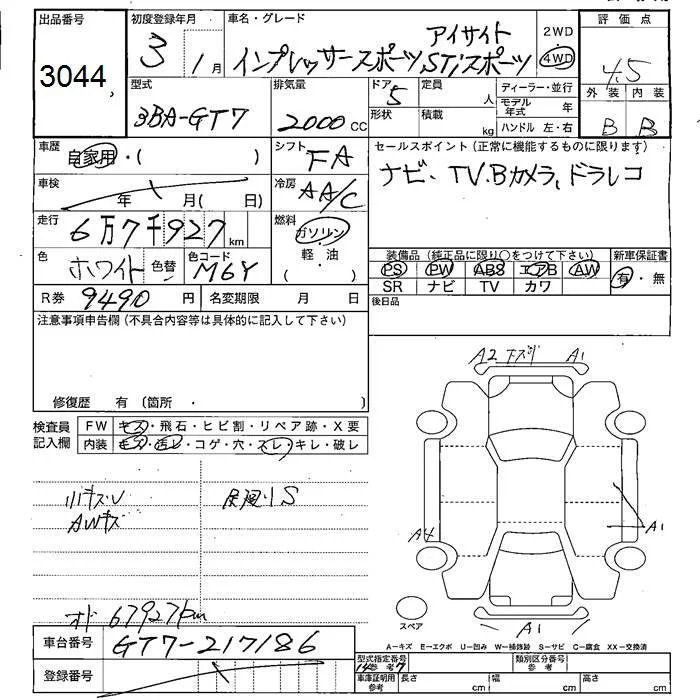 出品番号
3044
初度登録年月
3 / 1月
車名・グレード
アイサイト
インプレッサースポーツ STIスポーツ
2WD
4WD
評価点
4.5
外装 内装
B B
型式
3BA-GT7
排気量
2000 cc
ドア
5
形状
定員
人
積載
kg
ディーラー・並行
モデル年式 年
ハンドル 左・右
車歴
自家用・( )
シフト
FA
セールスポイント(正常に機能するものに限ります)
ナビ、TV.Bカメラ、ドラレコ
車検
年 月(日)
冷房
AA/C
走行
6万7千927km
燃料
ガソリン・軽・油
( )
色
ホワイト
色替
色コード
M6Y
装備品(純正品に限り○をつけて下さい)
PS PW ABS エアB AW
SR ナビ TV カワ
新車保証書
有・無
R券 9490円
名変期限 月 日
後日品
注意事項申告欄(不具合内容等は具体的に記入して下さい)
修復歴 有 (箇所・ )
検査員記入欄
FW キズ・飛石・ヒビ割・リペア跡・X要
内装 キズ・汚レ・コゲ・穴・スレ・キレ・破レ
小キズV
AWキズ
S
オド 67927km
A2 A1
A4
A1
スペア
A1
A−キズ E−エクボ U−凹み W−補修跡 S−サビ C−腐食 XX−交換済
車台番号
GT7-217186
登録番号
型式指定番号
参考
類別区分番号
車庫証明用参考
長さ cm
幅 cm
高さ cm